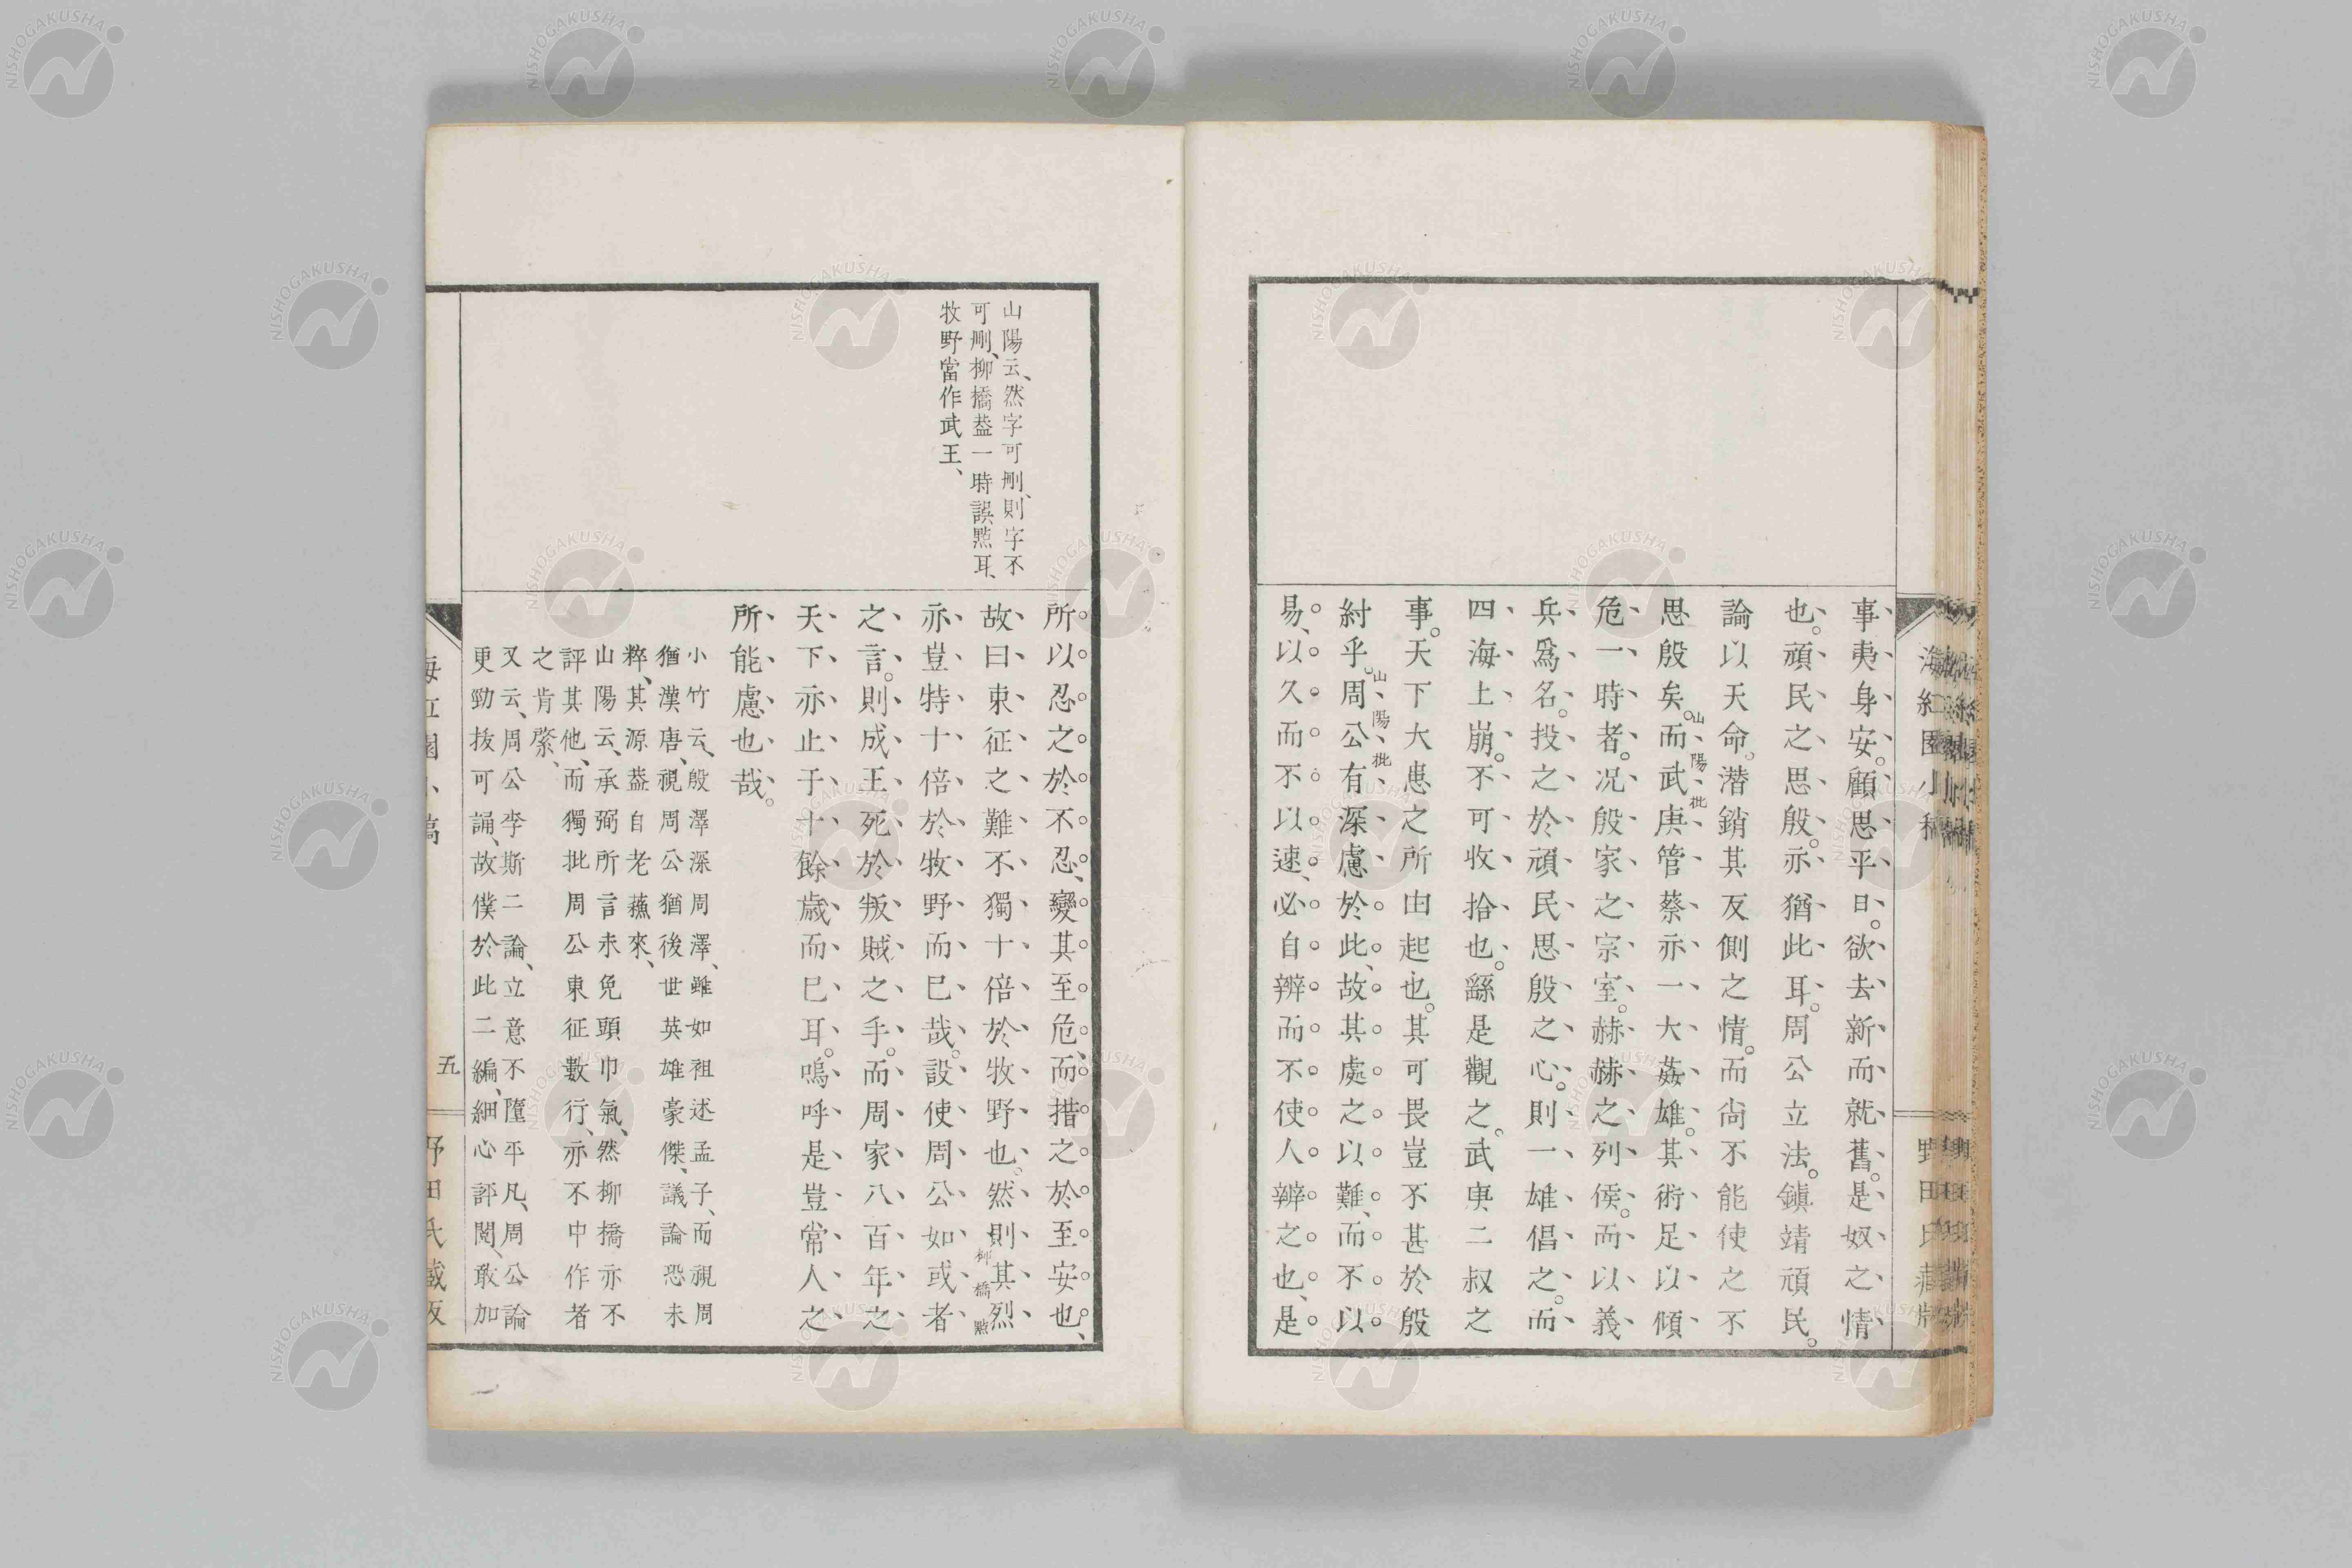 事夷身安。顧思平日。欲去新而就舊。是奴之情
也。頑民之思殷。亦猶此耳。周公立法。鎮靖頑民。
論以天命。潛銷其反側之情。而尙不能使之不
思殷矣。而武庚管蔡亦一大姦雄。其術足以傾
山陽批
危一時者。況殷家之宗室。赫赫之列侯。而以義
兵爲名。投之於頑民思殷之心。則一雄倡之。而
四海上崩。不可收拾也。繇是觀之。武庚二叔之
事。天下大患之所由起也。其可畏豈不甚於殷
紂乎。周公有深慮於此、故其處之以難、而不以
山陽批
易、以久而不以速、必自辨而不使人辨之也、是
海紅園小稿
野田氏藏版
山陽云、然字可刪、則字不
可刪、柳橋蓋一時誤㸃耳、
牧野當作武王、
所以忍之於不忍、變其至危、而措之於至安也、
故曰東征之難不獨十倍於牧野也。然則其烈
柳橋㸃
亦豈特十倍於牧野而巳哉。設使周公如或者
之言。則成王死於叛賊之手。而周家八百年之
天下亦止于十餘歲而巳耳。嗚呼是豈常人之
所能慮也哉。
小竹云、殷澤深周澤、雖如祖述孟子、而視周
猶漢唐、視周公猶後世英雄豪傑、議論恐未
粹、其源蓋自老蘇來、
山陽云、承弼所言未免頭巾氣、然柳橋亦不
評其他、而獨批周公東征數行、亦不中作者
之肯綮、
又云、周公李斯二論、立意不墮平凡、周公論
更勁拔可誦、故僕於此二編、細心評閱、敢加
海紅園小稿
五
野田氏藏版
NISHOGAKUSHA